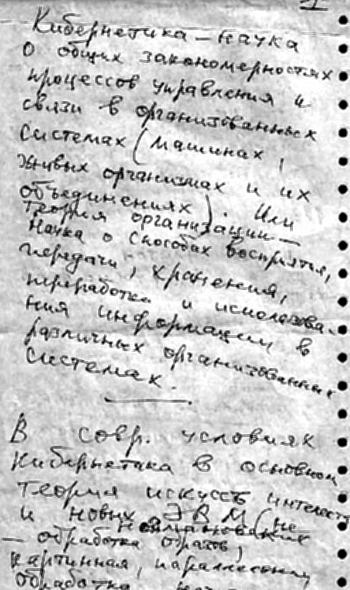 1
Кибернетика – наука
о общих закономерностях
процессов управления и
связи в организованных
системах (машинах,
живых организмах и их
объединениях). Или
Теория организации –
наука о способах восприятия,
передачи, хранения,
переработки и использова-
ния информации в
различных организованных
системах.
В совр. условиях
Кибернетика в основном
теория искусств интеллекта
и новых ЭВМ (не
неймановских
– обработка образов,
картинная, параллельная
обработка